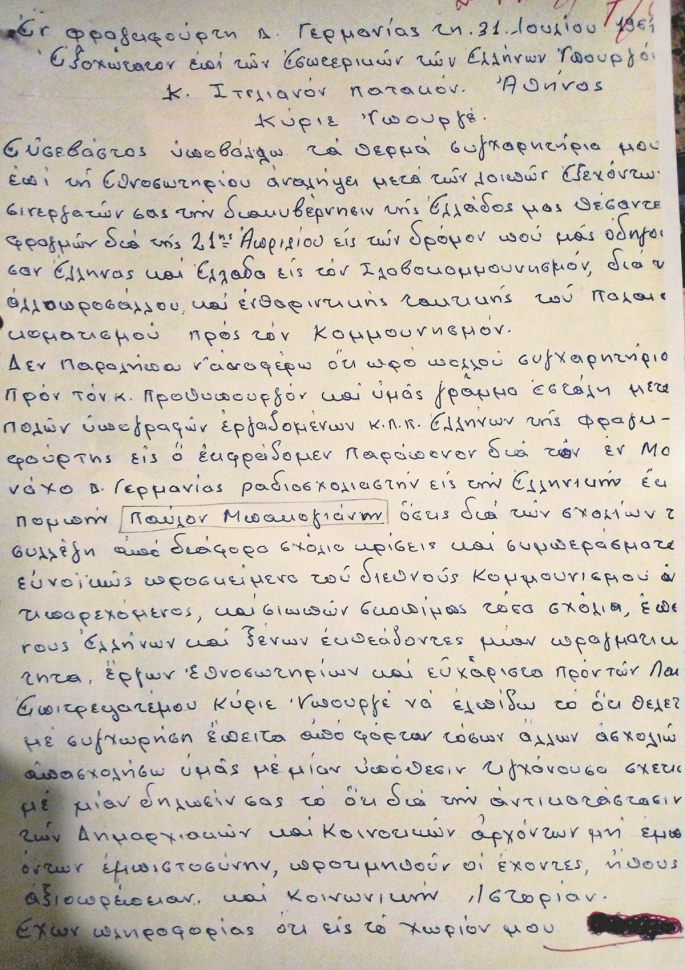 Εν φραγκφούρτη Δ. Γερμανίας τη. 31. Ιουλίου 196
Εξοχώτατον επί τών Εσωτερικών τών Ελλήνων Υπουργό
κ. Στελιανόν πατακόν. Αθήνας
Κύριε Υπουργέ.
Εύσεβάστος ύποβάλλω τά θερμά συγχαρητήρια μου
έπί τή Εθνοσωτηρίου άναλήψει μετά τών λοιπών Εξεχόντω
σινεργατών σας τήν διακυβέρνησιν τής Ελλάδος μας θέσαντε
φραγμών διά τής 21ης Απριλίου είς τών δρόμον πού μάς όδηγοι
σαν Ελληνας καί Ελλάδα είς τόν Σλαβοκομμουνησμόν, διά τ
άλλοπροσάλλου, καί ένθαριντικής τακτικής τού Παλαι
κοματισμού πρός τόν Κομμουνησμόν.
Δεν Παραλήπω ν'αναφέρω ότι πρό πολλού συγχαρητήριο
Πρόν τόν κ. Προθυπουργόν καί ύμάς γράμμα έστάλη μετά
πολών ύπογραφών έργαδομένων κ.π.π. Ελλήνων τής φραγκ-
φούρτης είς ό έκφράδομεν παράπονον διά τόν έν Μο
νάχο Δ. Γερμανίας ραδιοσχολιαστήν είς τήν Ελληνικήν έκ
πομπήν Παύλον Μπακογιάνην όστις διά τών σχολίων τ
συλλέξη από διάφορα σχόλια κρίσεις καί συμπεράσματα
εύνοϊκώς προσκείμενα τού διεθνούς Κομμουνισμού ά
τιπαρεχόμενος, καί σιωπών σκοπίμως τόσα σχόλια, έπε
νους Ελλήνων καί ξένων έκθεάδοντες μίαν πραγματικ
τητα, έργων Εθνοσωτηρίων καί εύχάριστα πρόν τών Λαι
Επιτρέψατέμου Κύριε Υπουργέ νά έλπίδω τό ότι θελετ
μέ συγχωρήση έπειτα από φόρτον τόσων άλλων άσχολιώ
απασχολήσω ύμάς μέ μίαν ύπόθεσιν τιγχάνουσα σχετικ
μέ μίαν δηλωσίν σας τό ότι διά τήν άντικατάστασιν
τών Δημαρχιακών καί Κοινοτικών άρχόντων μή έμπν
όντων έμπιστοσύνην, προτιμηθούν οί έχοντες, ήθους
άξιοπρέπειαν. καί Κοινωνικήν Ιστορίαν.
Εχων πληροφορίας ότι είς τό χωρίον μου